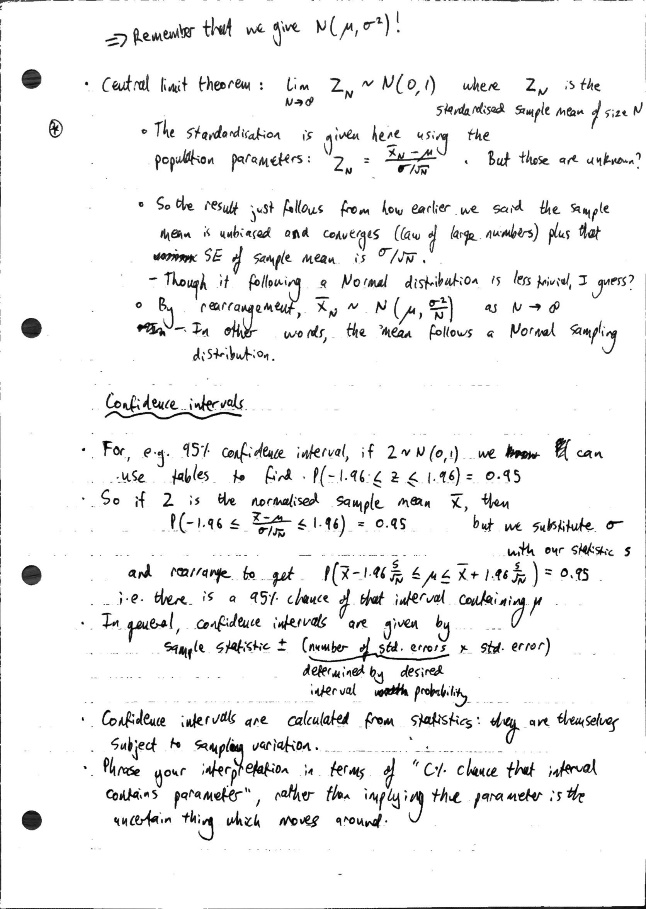 ⇒ Remember that we give N(μ, σ²)!
· Central limit theorem: lim N→∞ Z_N ~ N(0,1) where Z_N is the
standardised sample mean of size N
* ∘ The standardisation is given here using the
population parameters: Z_N = (x̄_N − μ)/(σ/√N). But those are unknown?
∘ So the result just follows from how earlier we said the sample
mean is unbiased and converges (law of large numbers) plus that
SE of sample mean is σ/√N.
– Though it following a Normal distribution is less trivial, I guess?
∘ By rearrangement, x̄_N ~ N(μ, σ²/N) as N → ∞
– In other words, the mean follows a Normal sampling
distribution.
Confidence intervals
· For, e.g. 95% confidence interval, if Z ~ N(0,1) we can
use tables to find P(-1.96 ≤ z ≤ 1.96) = 0.95
· So if Z is the normalised sample mean x̄, then
P(-1.96 ≤ (x̄−μ)/(σ/√N) ≤ 1.96) = 0.95 but we substitute σ
with our statistic s
and rearrange to get P(x̄ − 1.96 s/√N ≤ μ ≤ x̄ + 1.96 s/√N) = 0.95
i.e. there is a 95% chance of that interval containing μ
· In general, confidence intervals are given by
sample statistic ± (number of std. errors × std. error)
determined by desired
interval probability
· Confidence intervals are calculated from statistics: they are themselves
subject to sampling variation.
· Phrase your interpretation in terms of "C% chance that interval
contains parameter", rather than implying the parameter is the
uncertain thing which moves around.